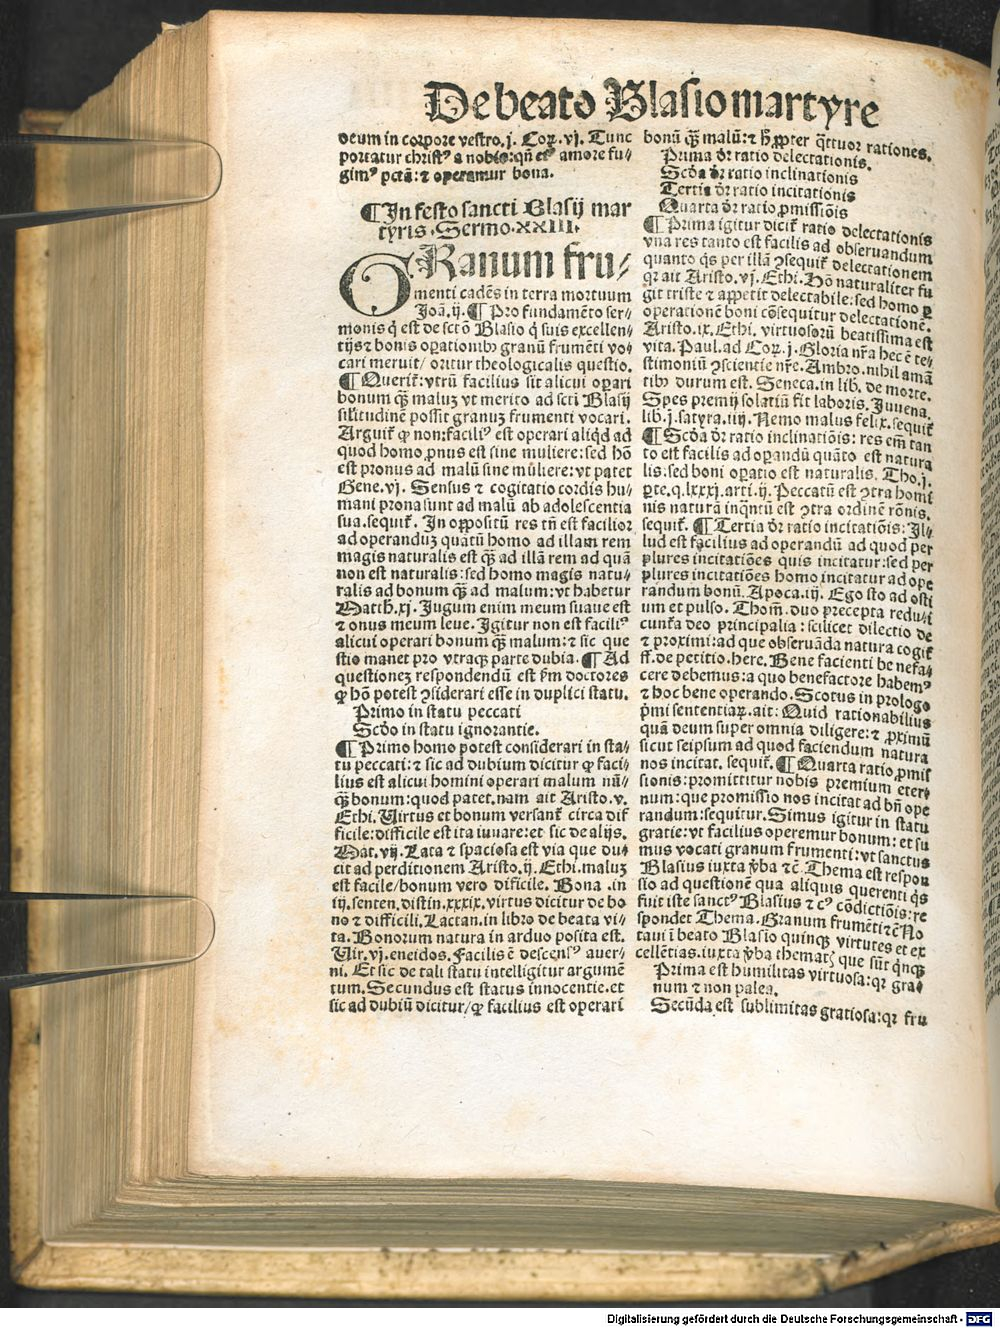 De beato Blasio martyre
deum in corpore vestro.j. Coꝝ. vj. Tunc
portatur christꝰ a nobis: qn̄ eiꝰ amore fu⸗
gimꝰ pctā: ⁊ operamur bona.
¶ In festo sancti Blasij mar
tyris. Sermo. XXIII.
GRanum fru⸗
menti cadēs in terra mortuum
Joā. ij. ¶ Pro fundamēto ser⸗
monis q̇ est de sctō Blasio q̇ suis excellen⸗
tijs ⁊ bonis oꝑationibꝫ granū frumēti vo⸗
cari meruit/ oritur theologicalis questio.
¶ Querit᷑: vtrū facilius sit alicui oꝑari
bonum qꝫ̄ maluꝫ vt merito ad scti Blasij
siĺitudinē possit granuꝫ frumenti vocari.
Arguit᷑ ꝙ non: faciliꝰ est operari aliqd̄ ad
quod homo ꝓnus est sine muliere: sed hō
est pronus ad malū sine muliere: vt patet
Gene. vj. Sensus ⁊ cogitatio cordis hu⸗
mani prona sunt ad malū ab adolescentia
sua. sequit᷑. In oppositū res tn̄ est facilior
ad operanduꝫ quātū homo ad illam rem
magis naturalis est qꝫ̄ ad illā rem ad quā
non est naturalis: sed homo magis natu⸗
ralis ad bonum qꝫ̄ ad malum: vt habetur
Matth. xj. Jugum enim meum suaue est
⁊ onus meum leue. Igitur non est faciliꝰ
alicui operari bonum qꝫ̄ malum: ⁊ sic que
stio manet pro vtraqꝫ parte dubia. ¶ Ad
questioneꝫ respondendū est ẜm doctores
ꝙ hō potest ꝯsiderari esse in duplici statu.
Primo in statu peccati
Scd̄o in statu ignorantie.
¶ Primo homo potest considerari in sta⸗
tu peccati: ⁊ sic ad dubium dicitur ꝙ faci⸗
lius est alicui homini operari malum nū⸗
qꝫ̄ bonum: quod patet. nam ait Aristo. v.
Ethi. Virtus et bonum versant᷑ circa dif
ficile: difficile est ita iuuare: et sic de alijs.
Mat. vij. Lata ⁊ spaciosa est via que du⸗
cit ad perditionem Aristo. ij. Ethi. maluꝫ
est facile/ bonum vero dificile. Bona. in
iij. senten. distin. xxxix. virtus dicitur de bo
no ⁊ difficili. Lactan. in libro de beata vi⸗
ta. Bonorum natura in arduo posita est.
Uir. vj. eneidos. Facilis ē descensꝰ auer⸗
ni. Et sic de tali statu intelligitur argumē
tum. Secundus est status innocentie. et
sic ad dubiū dicitur/ ꝙ facilius est operari
bonū qꝫ̄ malū: ⁊ h̄ ꝓpter q̄ttuor rationes.
Prima dr̄ ratio delectationis.
Scd̄a dr̄ ratio inclinationis
Tertia dr̄ ratio incitationis
Quarta dr̄ ratio ꝓmissiōis
¶ Prima igitur dicit᷑ ratio delectationis
vna res tanto est facilis ad obseruandum
quanto q̇s per illā ꝯsequit᷑ delectationem
qꝛ ait Aristo. vj. Ethi. Hō naturaliter fu
git triste ⁊ appetit delectabile: sed homo ꝑ
operationē boni cōsequitur delectationē.
Aristo. ix. Ethi. virtuosorū beatissima est
vita. Paul. ad Coꝝ. j. Gloria nr̄a hec ē te⸗
stimoniū ꝯscientie nr̄e. Ambro. nihil amā
tibꝫ durum est. Seneca. in lib. de morte.
Spes premij solatiū fit laboris. Juuena.
lib. j. satyra. iiij. Nemo malus felix. sequit᷑
¶ Scd̄a dr̄ ratio inclinatiōis: res em̄ tan
to est facilis ad oꝑandū quāto est natura
lis: sed boni oꝑatio est naturalis. Tho. j.
ꝑte. q. lxxxj. arti. ij. Peccatū est ꝯtra homi
nis naturā inqn̄tū est ꝯtra ordinē rōnis.
sequit᷑. ¶ Tertia dr̄ ratio incitatiōis: Il⸗
lud est facilius ad operandū ad quod per
plures incitatiōes quis incitatur: sed per
plures incitatiōes homo incitatur ad ope
randum bonū. Apoca. iij. Ego sto ad osti
um et pulso. Thom̄. duo precepta redu⸗
cunt᷑ a deo principalia: scilicet dilectio de
⁊ proximi: ad que obseruāda natura cogit᷑
ff. de petitio. here. Bene facienti be nefa⸗
cere debemus: a quo benefactore habemꝰ
⁊ hoc bene operando. Scotus in prologo
p̄mi sententiaꝝ. ait: Quid rationabilius
quā deum super omnia diligere: ⁊ ꝓximū
sicut seipsum ad quod faciendum natura
nos incitat. sequit᷑. ¶ Quarta ratio ꝓmis
sionis: promittitur nobis premium eter⸗
num: que promissio nos incitat ad bn̄ ope
randum: sequitur. Simus igitur in statu
gratie: vt facilius operemur bonum: et su
mus vocati granum frumenti: vt sanctus
Blasius iuxta v̓ba ⁊c̄. Thema est respon
sio ad questionē qua aliquis querenti q̇s
fuit iste sanctꝰ Blasius ⁊ cꝰ cōdictiōis: re
spondet Thema. Granum frumēti ⁊c̄ No
taui ī beato Blasio quinqꝫ virtutes et ex
cellētias. iuxta v̓ba thematꝭ que sūt q̄nqꝫ
Prima est humilitas virtuosa: qꝛ gra⸗
num ⁊ non palea.
Secūda est sublimitas gratiosa: qꝛ fru
Digitalisierung gefördert durch die Deutsche Forschungsgemeinschaft - DFG